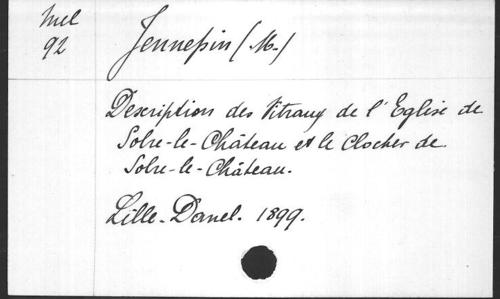 Mel
92
Jennepin (M.)
Description des Vitraux de l'Eglise de
Solre-le-Château et le Clocher de
Solre-le-Château.
Lille-Danel. 1899.